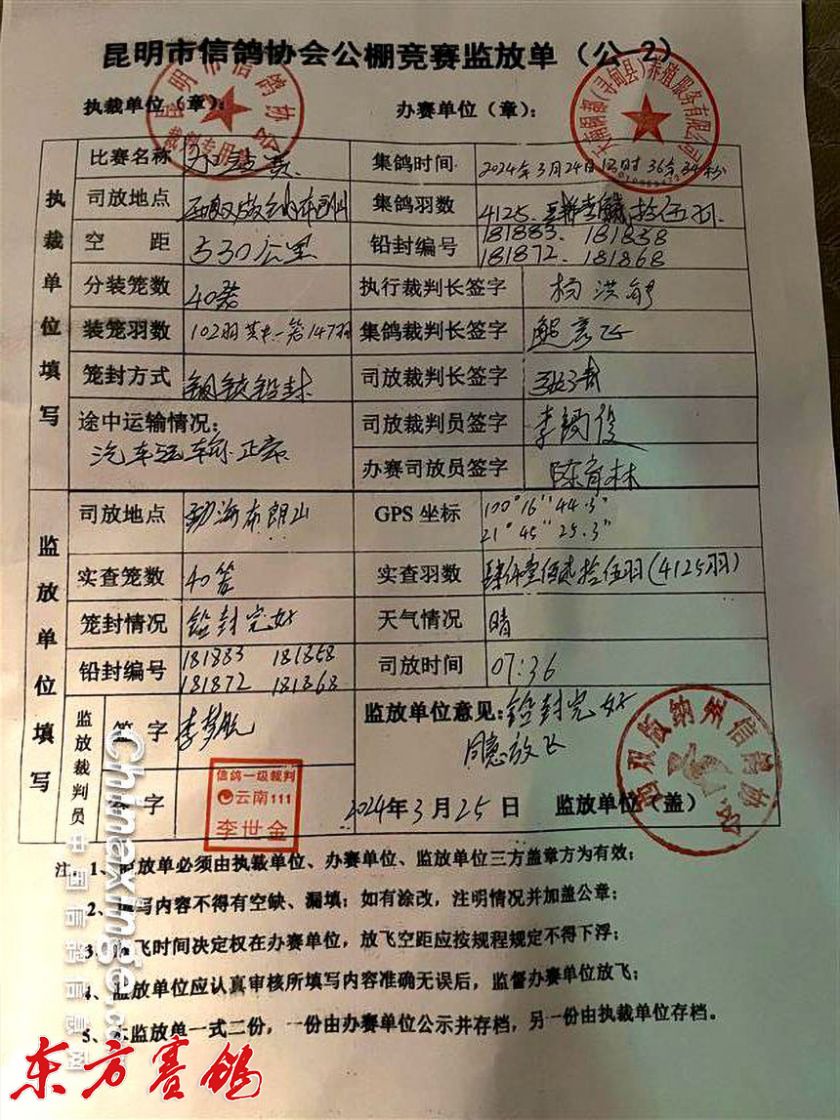 昆明市信鸽协会公棚竞赛监放单（公-2）
执裁单位（章）： 办赛单位（章）：
昆明市信鸽协会
裁判专用章
(寻甸县)养殖服务有限公司
执裁单位填写
比赛名称 集鸽时间 2024年3月24日 时36分34秒
司放地点 西双版纳布朗山 集鸽羽数 4125. 拾伍羽.
空 距 530公里 铅封编号 181883. 181858
181872. 181868
分装笼数 40笼 执行裁判长签字 杨洪能
装笼羽数 102羽其中一笼147羽 集鸽裁判长签字
笼封方式 钢丝铅封 司放裁判长签字
途中运输情况： 司放裁判员签字 李
汽车运输 正常
办赛司放员签字 陈育林
监放单位填写
司放地点 勐海布朗山 GPS 坐标 100°16"44.3"
21°45"25.3"
实查笼数 40笼 实查羽数 肆仟壹佰贰拾伍羽(4125羽)
笼封情况 铅封完好 天气情况 晴
铅封编号 181883 181858 司放时间 07:36
181872 181868
监放裁判员
签 字 李梦航 监放单位意见：铅封完好
同意放飞
签 字
信鸽一级裁判
云南111
李世金
2024年3月25日 监放单位（盖）
西双版纳州信鸽协会
注：1、监放单必须由执裁单位、办赛单位、监放单位三方盖章方为有效；
2、填写内容不得有空缺、漏填；如有涂改，注明情况并加盖公章；
3、放飞时间决定权在办赛单位，放飞空距应按规程规定不得下浮；
4、监放单位应认真审核所填写内容准确无误后，监督办赛单位放飞；
5、本监放单一式二份，一份由办赛单位公示并存档，另一份由执裁单位存档。
Chinaxinge.com
中国信鸽信息网
东方赛鸽